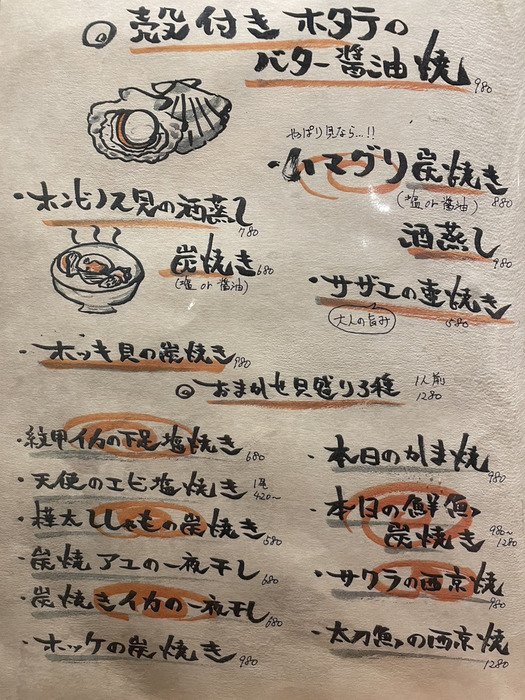 殻付きホタテの
バター醤油焼 980
やっぱり貝なら…!!
・ハマグリ炭焼き 880
(塩or醤油)
酒蒸し 980
・ホンビノス貝の酒蒸し 780
炭焼き 680
(塩or醤油)
・サザエの壷焼き 580
大人の旨み
・ホッキ貝の炭焼き 980
おまかせ貝盛り3種 1人前 1280
・紋甲イカの下足塩焼き 680
・天使のエビ塩焼き 1尾 420〜
・樺太ししゃもの炭焼き 580
・炭焼アユの一夜干し 680
・炭焼きイカの一夜干し 680
・ホッケの炭焼き 980
・本日のかま焼 980
・本日の鮮魚
炭焼き 980〜1280
・サワラの西京焼 980
・太刀魚の西京焼 1280